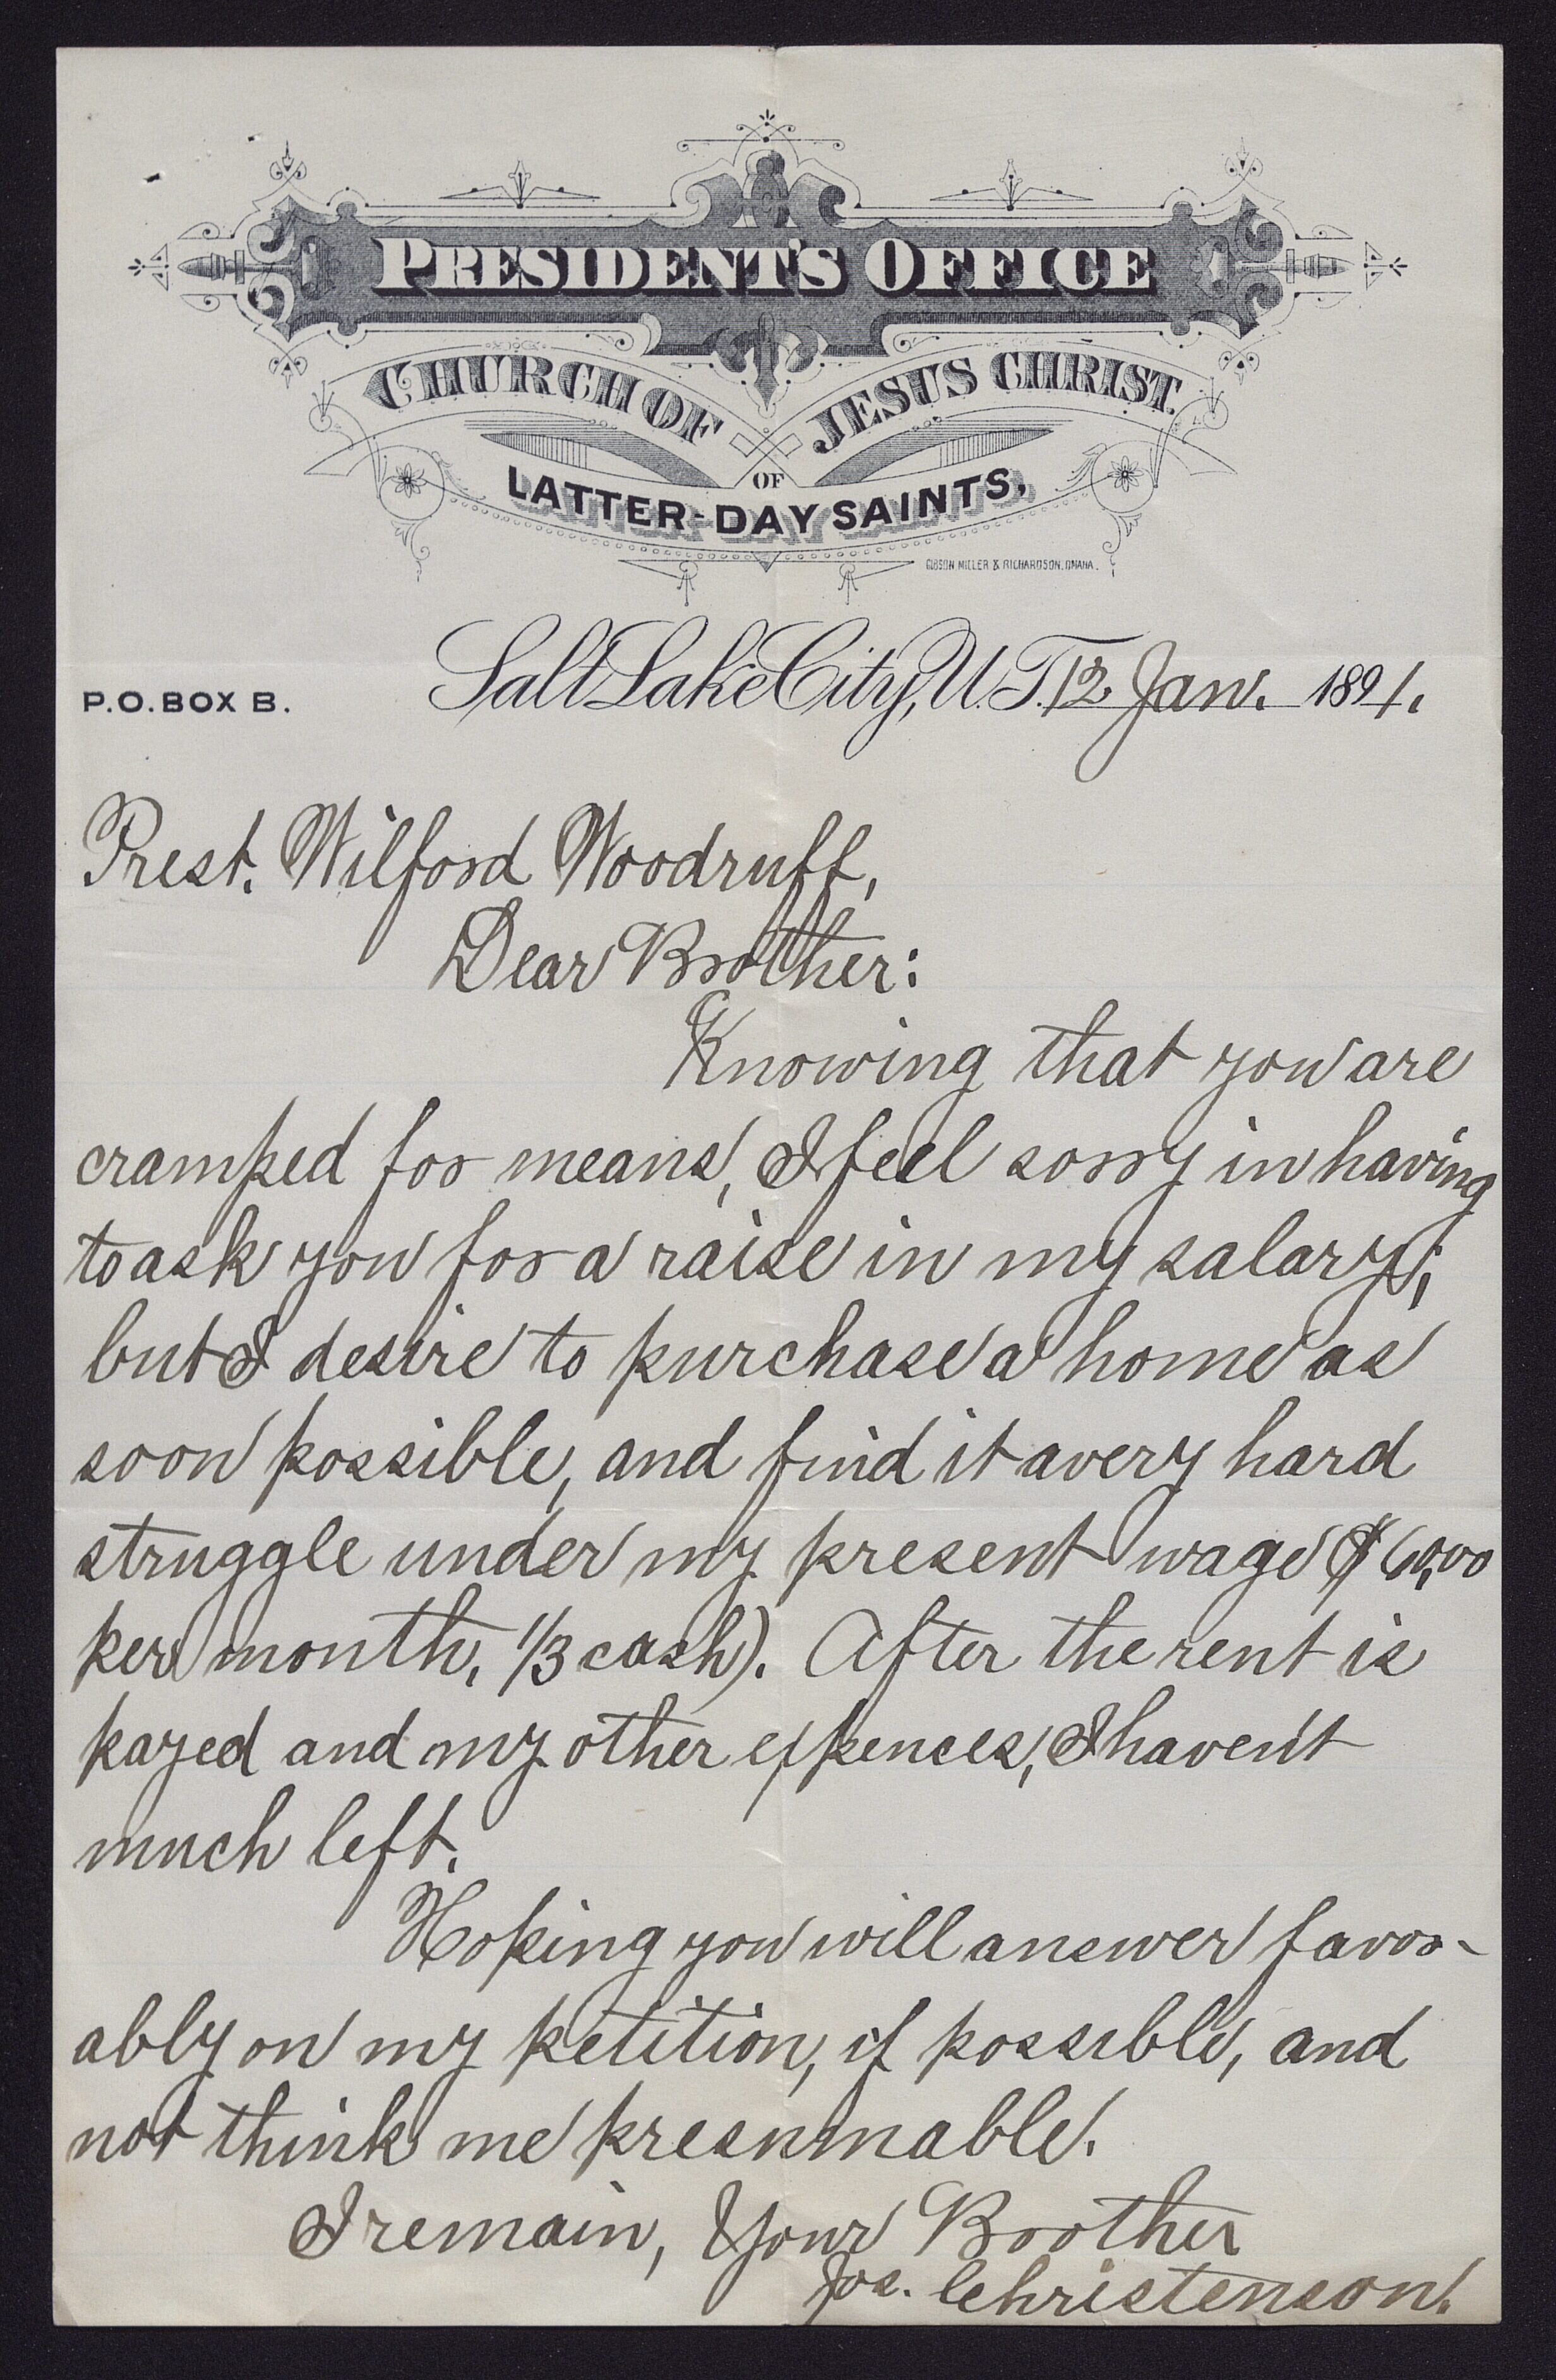 PRESIDENT'S OFFICE
CHURCH OF JESUS CHRIST.
OF
LATTER-DAY SAINTS,
GIBSON MILLER & RICHARDSON, OMAHA.
P.O. BOX B. Salt Lake City, U.T. 12 Jan. 1891.
Prest. Wilford Woodruff,
Dear Brother:
Knowing that you are
cramped for means, I feel sorry in having
to ask you for a raise in my salary;
but I desire to purchase a home as
soon possible, and find it a very hard
struggle under my present wage ($60,00
per month, 1/3 cash). After the rent is
payed and my other expences, I haven't
much left.
Hoping you will answer favor-
ably on my petition, if possible, and
not think me presumable.
I remain, Your Brother
Jos. Christenson.